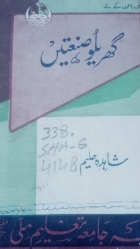 گھریلو صنعتیں
338.
SHA-G
4148
شاہدہ حلیم
جامعہ تعلیم ملی